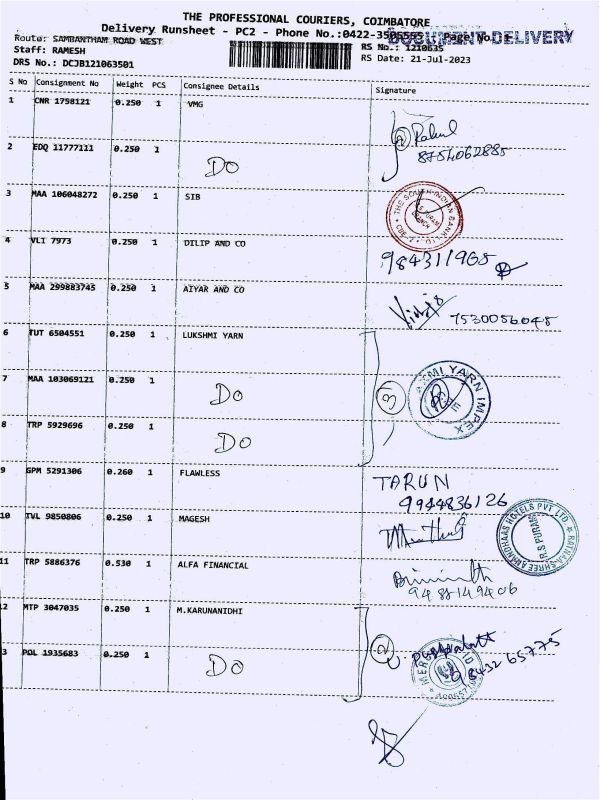 THE PROFESSIONAL COURIERS, COIMBATORE
Delivery Runsheet - PC2 - Phone No.:0422-3505555 Page No.
DOCUMENT DELIVERY
Route: SAMBANTHAM ROAD WEST
Staff: RAMESH
RS No.: 1210635
DRS No.: DCJB121063501
RS Date: 21-Jul-2023
S No Consignment No Weight PCS Consignee Details Signature
1 CNR 1758121 0.250 1 VMG
2 Rahul
8754062885
2 EDQ 11777111 0.250 1 DO
3 MAA 106048272 0.250 1 SIB
THE SOUTH INDIAN BANK LTD.
4 VLI 7973 0.250 1 DILIP AND CO
984311965
5 MAA 299883745 0.250 1 AIYAR AND CO
7530056045
6 TUT 6504551 0.250 1 LUKSHMI YARN
7 MAA 103069121 0.250 1 DO
3
YARN IMPEX
8 TRP 5929696 0.250 1 DO
9 GPM 5291306 0.260 1 FLAWLESS
TARUN
9944836126
10 TVL 9850806 0.250 1 MAGESH
RATNA SHREE ANANDRAAS HOTELS PVT LTD.
R.S PURAM
11 TRP 5886376 0.530 1 ALFA FINANCIAL
9488149406
12 MTP 3047035 0.250 1 M.KARUNANIDHI
2
98432 65775
13 POL 1935683 0.250 1 DO